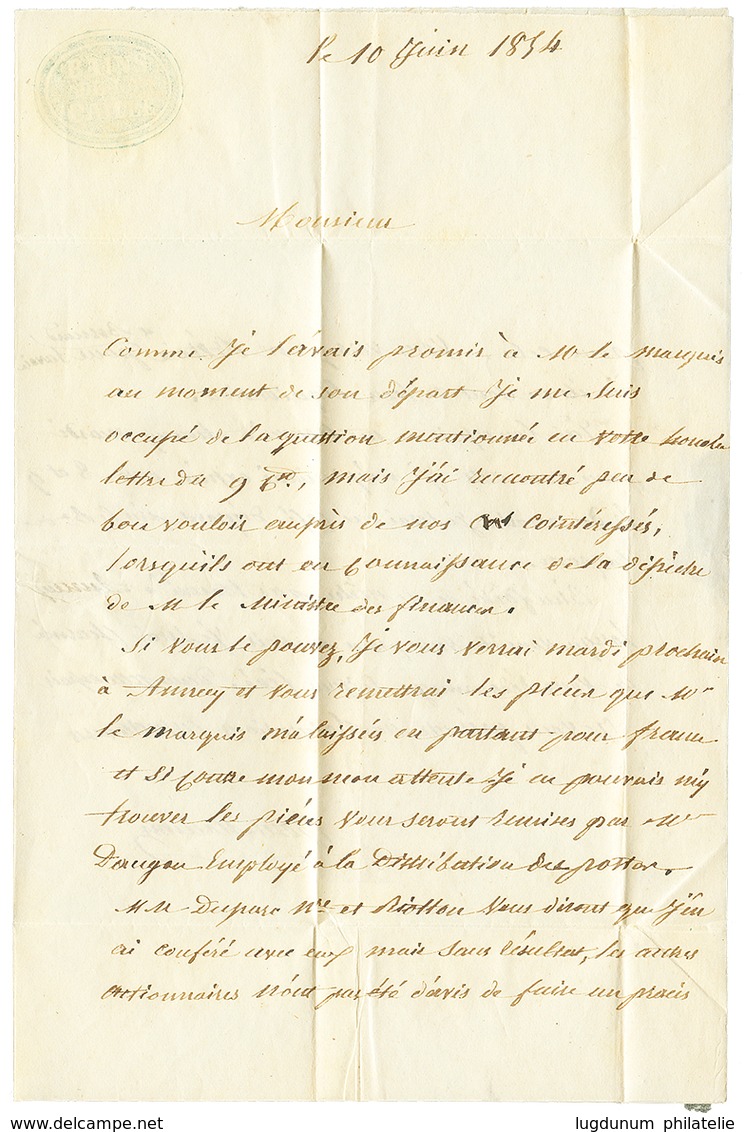 le 10 Juin 1854
Monsieur
Comme Je l'avais promis à Mr le marquis
au moment de son départ Je me suis
occupé de la question mentionnée en votre
lettre du 9 Ct, mais J'ai rencontré peu de
bon vouloir auprès de nos cointéressés,
lorsqu'ils ont eu connaissance de la dépêche
de Mr le Ministre des finances.
Si vous le pouvez, Je vous verrai mardi prochain
à Annecy et vous remettrai les pièces que Mr
le marquis m'a laissées en partant pour france
et si contre mon attente Je ne pouvais m'y
trouver les pièces vous seront remises par Mr
Employé à la Distribution des postes.
MM Duparc Nre et Riotton vous diront que J'en
ai conféré avec eux mais sans résultat, les autres
actionnaires n'ont pas été d'avis de faire un procès
delcampe.net
lugdunum philatelie